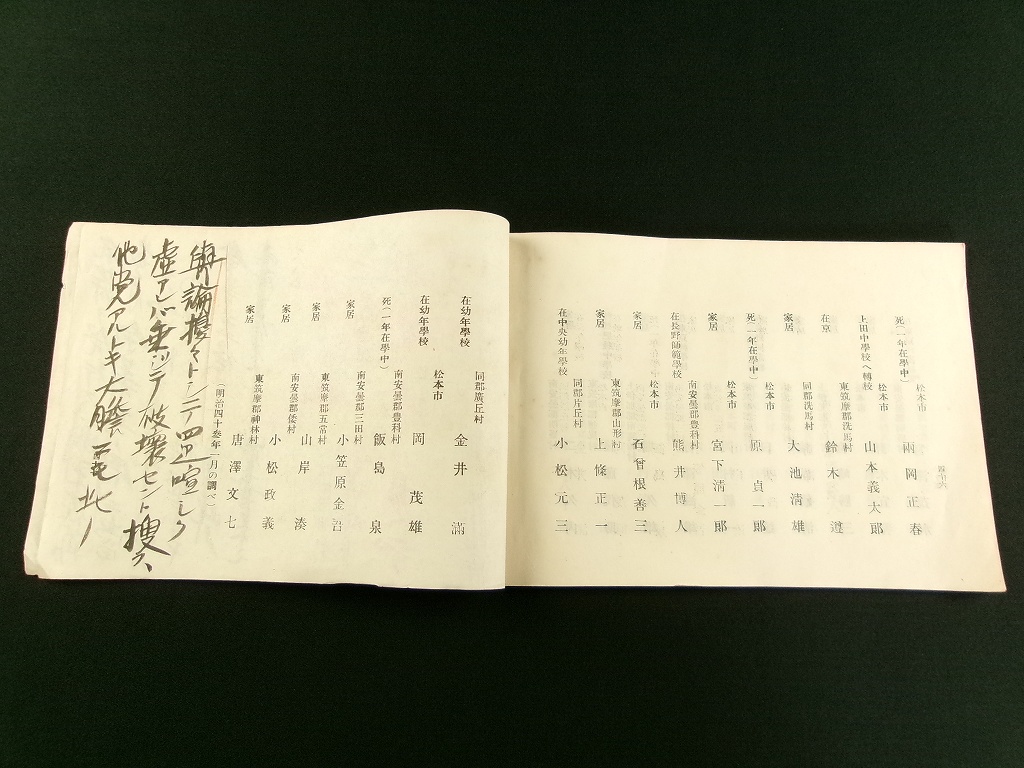 死(二年在學中)
松本市
兩岡正春
上田中學校へ轉校
松本市
山本義太郎
在京
東筑摩郡洗馬村
鈴木遵
家居
同郡洗馬村
大池淸雄
死(二年在學中)
松本市
原貞一郎
家居
松本市
宮下淸一郎
在長野師範學校
南安曇郡豊科村
熊井博人
家居
松本市
石曾根善三
家居
東筑摩郡山形村
上條正一
在中央幼年學校
同郡片丘村
小松元三
在幼年學校
同郡廣丘村
金井滿
在幼年學校
松本市
岡茂雄
死(一年在學中)
南安曇郡豊科村
飯島泉
家居
南安曇郡三田村
小笠原金
家居
東筑摩郡五常村
山岸湊
家居
南安曇郡倭村
小松政義
家居
東筑摩郡神林村
唐澤文七
(明治四十叁年一月の調べ)
輿論
虛アレバ乗ッテ破壞セント捜
他覚アルトキ大膽